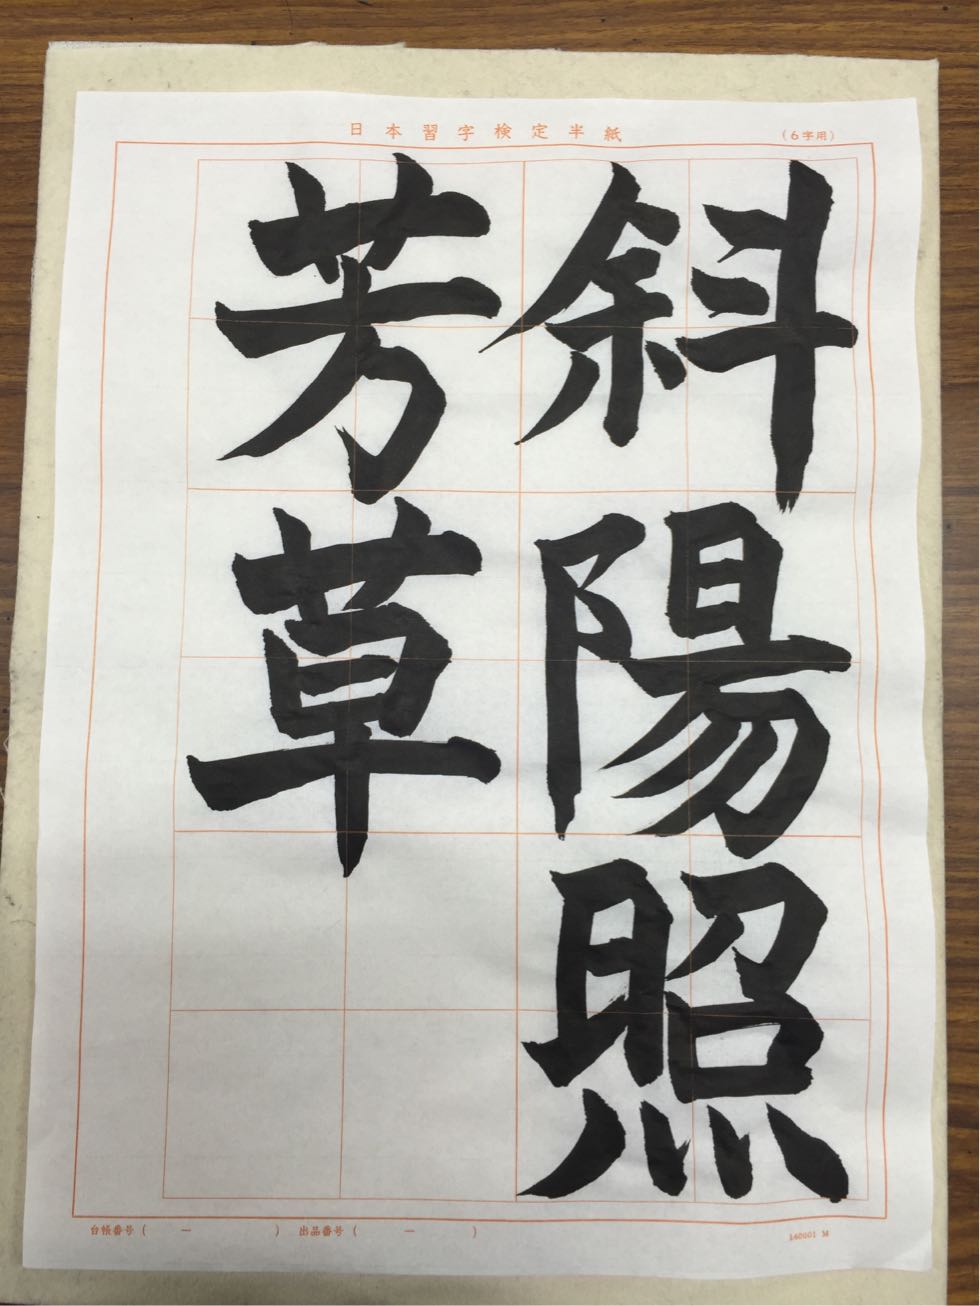 日本習字検定半紙
（6字用）
斜陽照
芳草
台帳番号（　ー　）　出品番号（　ー　）
160601 M